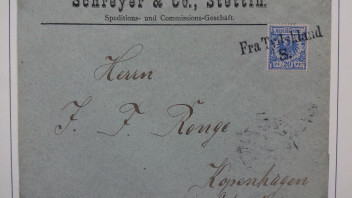 Schreyer & Co., Stettin.
Speditions- und Commissions-Geschäft.
Fra Tydskland
S.
Herrn
J. F. Ronge
Kopenhagen